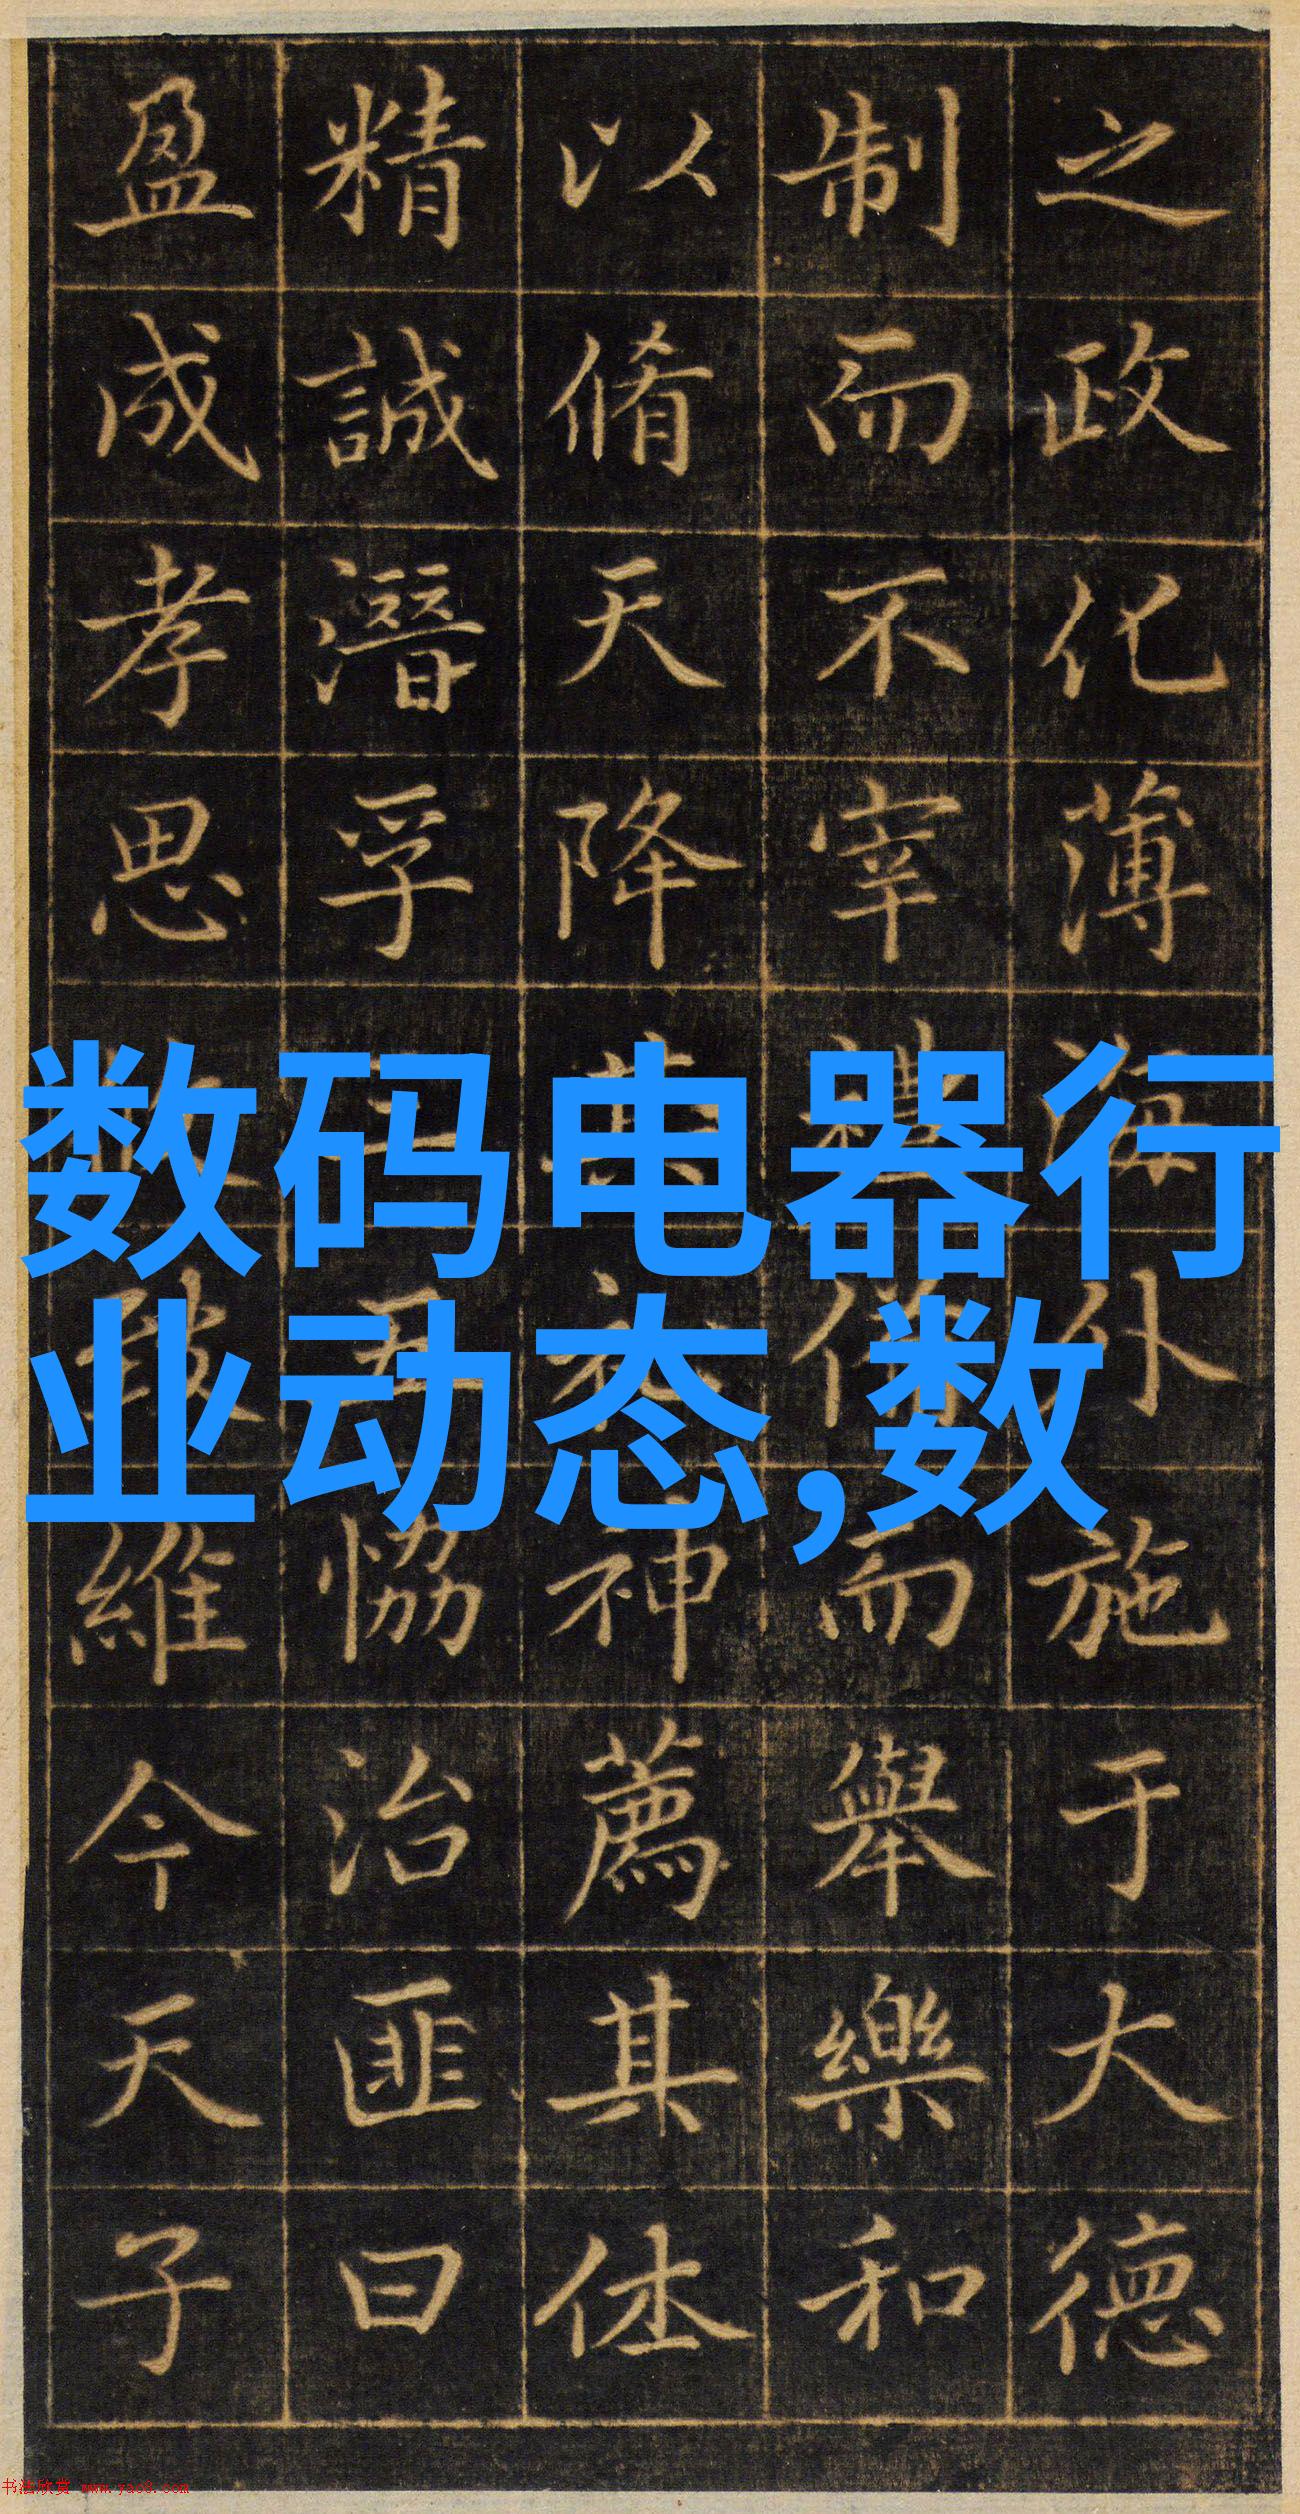 之政化薄海外施于大德
制而不宰禮備而舉樂和
以脩天降其祉神薦其休
精誠潛孚三五恊治匪曰
盈成孝思維今天子
数码电器行
业动态,数
书法欣赏 www.yac8.com